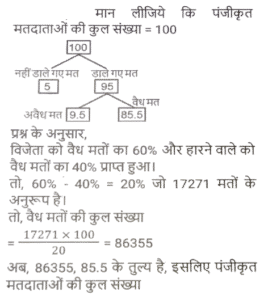 मान लीजिये कि पंजीकृत
मतदाताओं की कुल संख्या = 100
100
नहीं डाले गए मत डाले गए मत
5 95
वैध मत
अवैध मत 9.5 85.5
प्रश्न के अनुसार,
विजेता को वैध मतों का 60% और हारने वाले को
वैध मतों का 40% प्राप्त हुआ।
तो, 60% - 40% = 20% जो 17271 मतों के
अनुरूप है।
तो, वैध मतों की कुल संख्या
= 17271 × 100 / 20 = 86355
अब, 86355, 85.5 के तुल्य है, इसलिए पंजीकृत
मतदाताओं की कुल संख्या